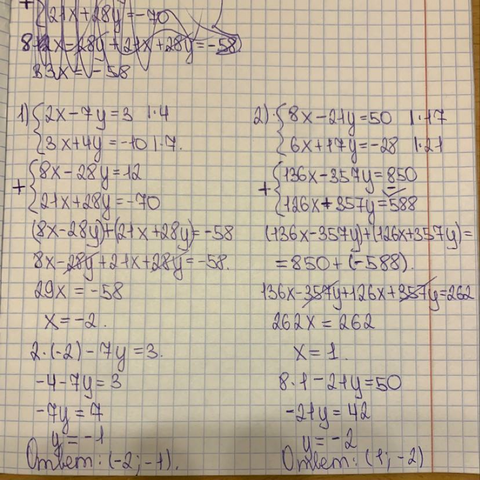 {21x+28y=-70
8x-28y+21x+28y=-58
83x=-58
1) {2x-7y=3 |·4
{3x+4y=-10 |·7.
+ {8x-28y=12
{21x+28y=-70
(8x-28y)+(21x+28y)=-58
8x-28y+21x+28y=-58.
29x=-58
x=-2.
2·(-2)-7y=3.
-4-7y=3
-7y=7
y=-1
Ответ: (-2;-1).
2) {8x-21y=50 |·17
{6x+17y=-28 |·21
+ {136x-357y=850
{126x+357y=588
(136x-357y)+(126x+357y)=
=850+(-588).
136x-357y+126x+357y=262
262x=262
x=1.
8·1-21y=50
-21y=42
y=-2
Ответ: (1;-2)